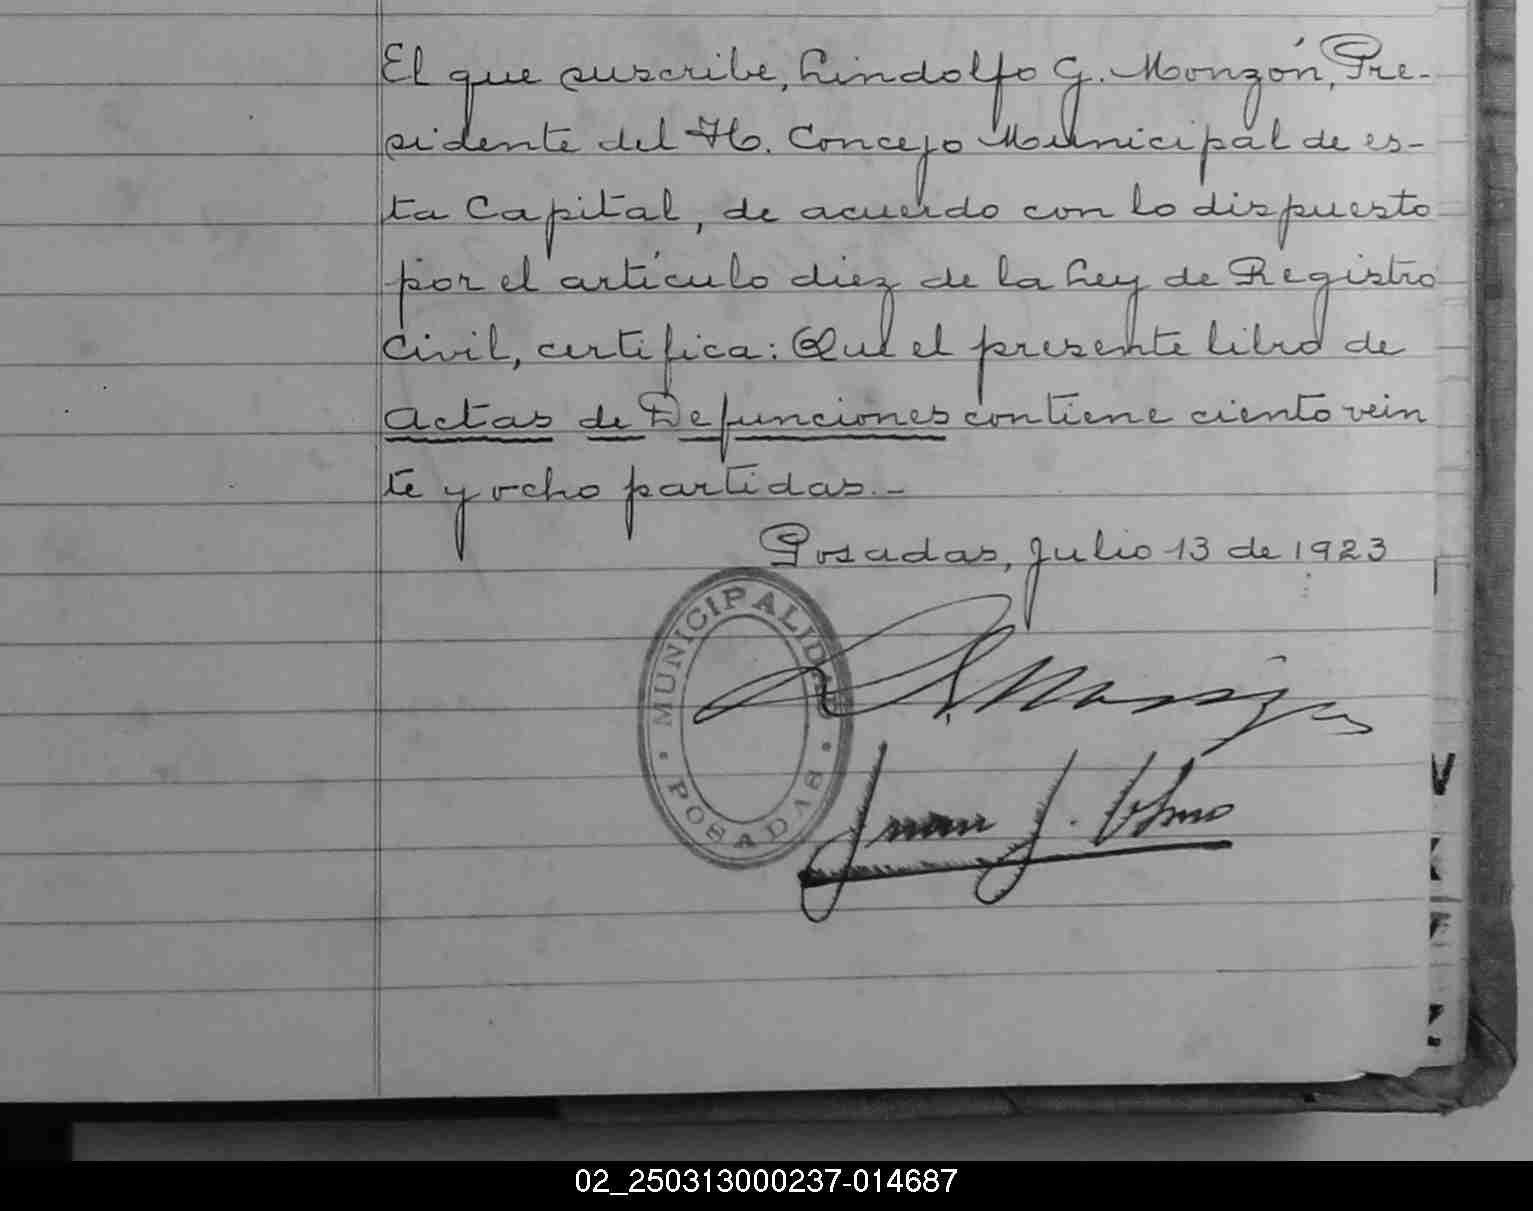 El que suscribe, Lindolfo G. Monzón, Pre-
sidente del H. Concejo Municipal de es-
ta Capital, de acuerdo con lo dispuesto
por el artículo diez de la Ley de Registro
Civil, certifica: Que el presente libro de
Actas de Defunciones contiene ciento vein
te y ocho partidas.-
Posadas, Julio 13 de 1923
MUNICIPALIDAD
POSADAS
L. G. Monzón
Juan J.
02_250313000237-014687